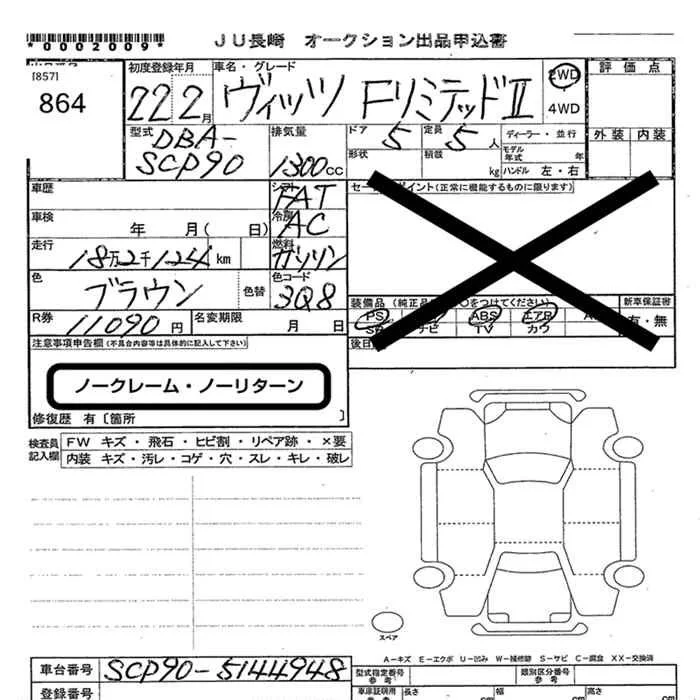 *0002009*
JU長崎 オークション出品申込書
[857]
864
初度登録年月
22年2月
車名・グレード
ヴィッツ FリミテッドⅡ
2WD
4WD
評価点
外装 内装
型式
DBA-
SCP90
排気量
1300cc
ドア 5
定員 5人
形状
積載 kg
ディーラー・並行
モデル年式 年
ハンドル 左・右
車歴
シフト
FAT
車検 年 月( 日)
冷房
AC
走行
18万2千124km
燃料
ガソリン
色
ブラウン
色替
色コード
3Q8
R券
11090円
名変期限 月 日
イント(正常に機能するものに限ります)
装備品 (純正品 ○をつけてください)
新車保証書
有・無
PS ABS エアB
ナビ TV カワ
後日
注意事項申告欄(不具合内容等は具体的に記入して下さい)
ノークレーム・ノーリターン
修復歴 有〔箇所 〕
検査員記入欄
FW キズ・飛石・ヒビ割・リペア跡・×要
内装 キズ・汚レ・コゲ・穴・スレ・キレ・破レ
スペア
A-キズ E-エクボ U-凹み W-補修跡 S-サビ C-腐食 XX-交換済
車台番号 SCP90-5144948
登録番号
型式指定番号
参考
類別区分番号
参考
車庫証明用
参考
長さ cm
幅 cm
高さ cm